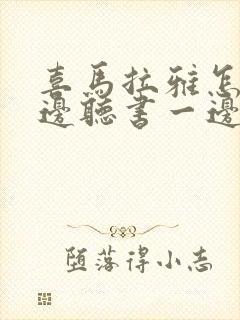 喜馬拉雅怎
邊聽書一邊
堕落得小志